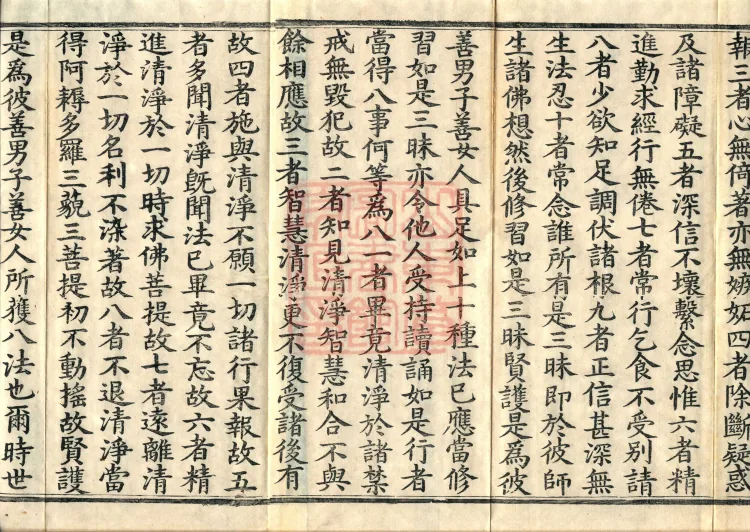 報三者心無倚著亦無嫉妬四者除斷疑惑
及諸障礙五者深信不壞繫念思惟六者精
進勤求經行無倦七者常行乞食不受別請
八者少欲知足調伏諸根九者正信甚深無
生法忍十者常念誰所有是三昧即於彼師
生諸佛想然後修習如是三昧賢護是為彼
善男子善女人具足如上十種法已應當修
習如是三昧亦令他人受持讀誦如是行者
當得八事何等為八一者畢竟清淨於諸禁
戒無毀犯故二者知見清淨智慧和合不與
餘相應故三者智慧清淨更不復受諸後有
故四者施與清淨不願一切諸行果報故五
者多聞清淨既聞法已畢竟不忘故六者精
進清淨於一切時求佛菩提故七者遠離清
淨於一切名利不染著故八者不退清淨當
得阿耨多羅三藐三菩提初不動搖故賢護
是為彼善男子善女人所獲八法也爾時世